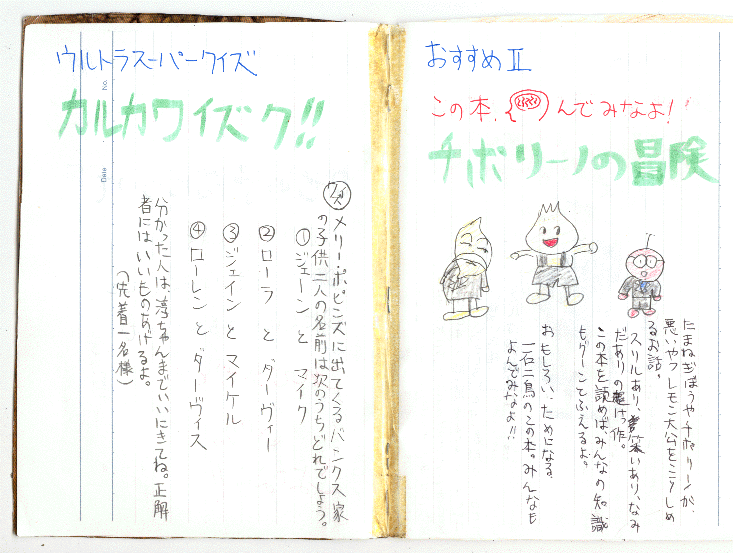 おすすめⅡ
この本、んでみなよ!
チポリーノの冒険
たまねぎぼうやチポリーノが、
悪いやつレモン大公をこらしめ
るお話。
スリルあり、笑いあり、なみ
だありの超けっ作。
この本を読めばみんなの知識
もグーンてふえるよ。
おもしろい、ためになる、
一石二鳥のこの本。みんなも
よんでみなよ!!
ウルトラスーパークイズ
カルカワイズク!!
No.
Date
クイズ メリーポピンズに出てくるバンクス家
の子供二人の名前は次のうちどれでしょう。
①ジェーン と マイク
②ローラ と ダーヴィー
③ジェイン と マイケル
④ローレン と ダーヴィス
分かった人は、淳ちゃんまでいいにきてね。正解
者にはいいものあげるよ。
(先着一名様)